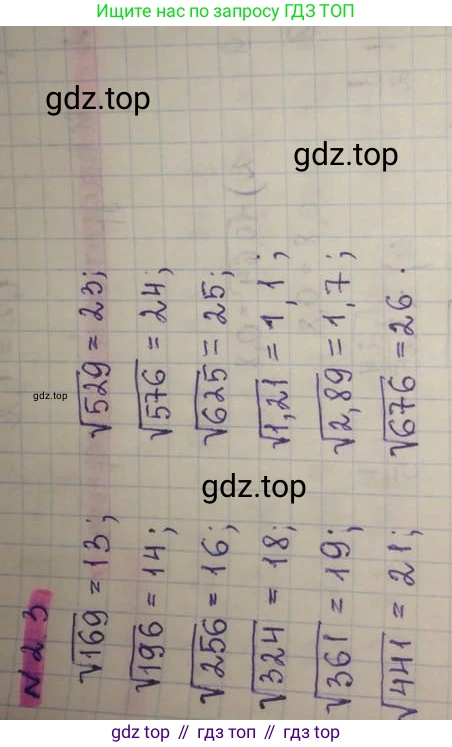 Ищите нас по запросу ГДЗ ТОП
gdz.top
gdz.top
gdz.top
gdz.top
№23
√169 = 13; √529 = 23;
√196 = 14; √576 = 24;
√256 = 16; √625 = 25;
√324 = 18; √1,21 = 1,1;
√361 = 19; √2,89 = 1,7;
√441 = 21; √676 = 26.
gdz top // гдз топ // gdz top